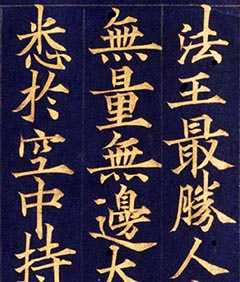 法王最勝人
無量無邊大
悉於空中持